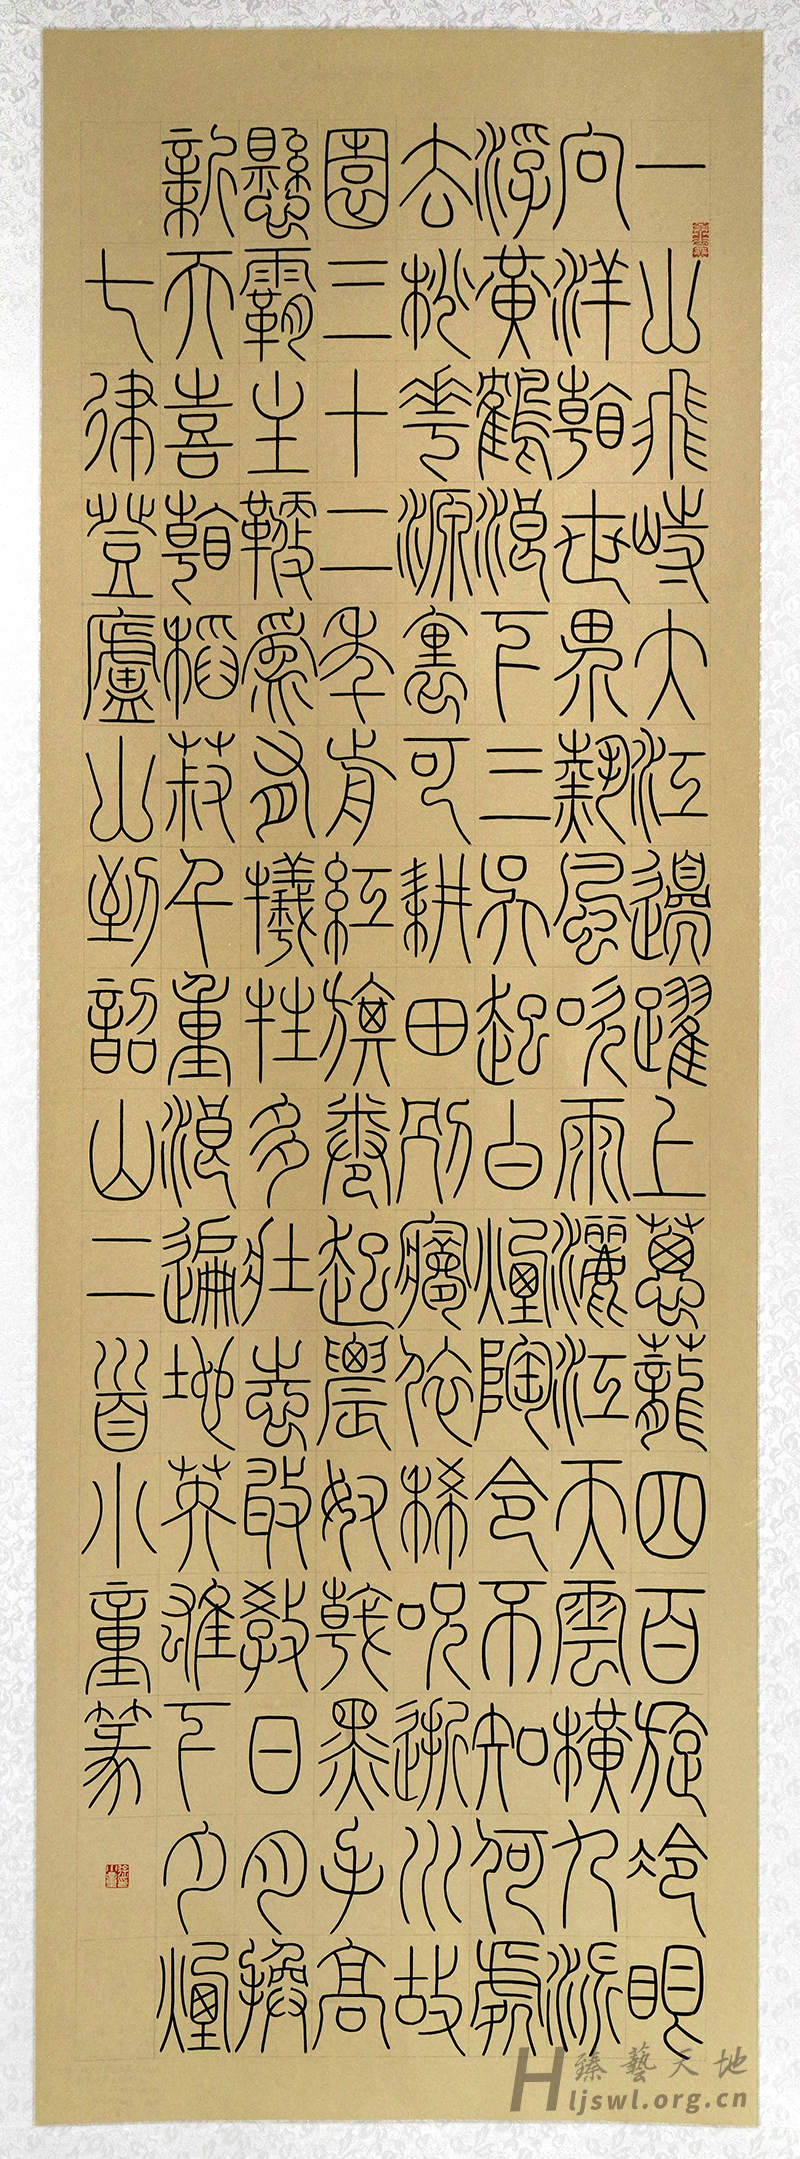 一山飛峙大江邊躍上蔥蘢四百旋冷眼
向洋看世界熱風吹雨灑江天雲橫九派
浮黃鶴浪下三吳起白煙陶令不知何處
去桃花源裏可耕田別夢依稀咒逝川故
園三十二年前紅旗卷起農奴戟黑手高
懸霸主鞭為有犧牲多壯志敢教日月換
新天喜看稻菽千重浪遍地英雄下夕煙
七律登廬山到韶山二首小童篆
臻藝天地
Hljswl.org.cn